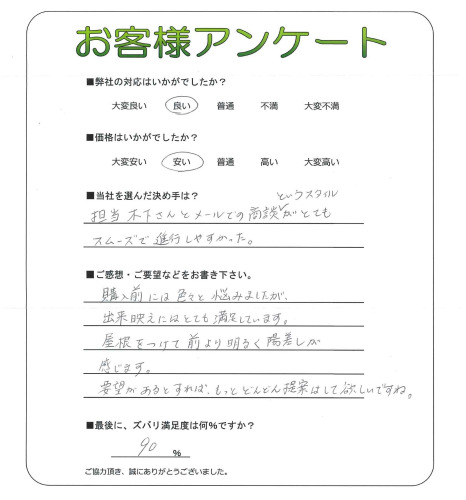 お客様アンケート
■弊社の対応はいかがでしたか？
大変良い 良い 普通 不満 大変不満
■価格はいかがでしたか？
大変安い 安い 普通 高い 大変高い
■当社を選んだ決め手は？
というスタイル
担当 木下さんとメールでの商談がとても
スムーズで進行しやすかった。
■ご感想・ご要望などをお書き下さい。
購入前には色々と悩みましたが、
出来映えにはとても満足しています。
屋根をつけて前より明るく陽差しが
感じます。
要望があるとすれば、もっとどんどん提案はして欲しいですね。
■最後に、ズバリ満足度は何%ですか？
90 %
ご協力頂き、誠にありがとうございました。